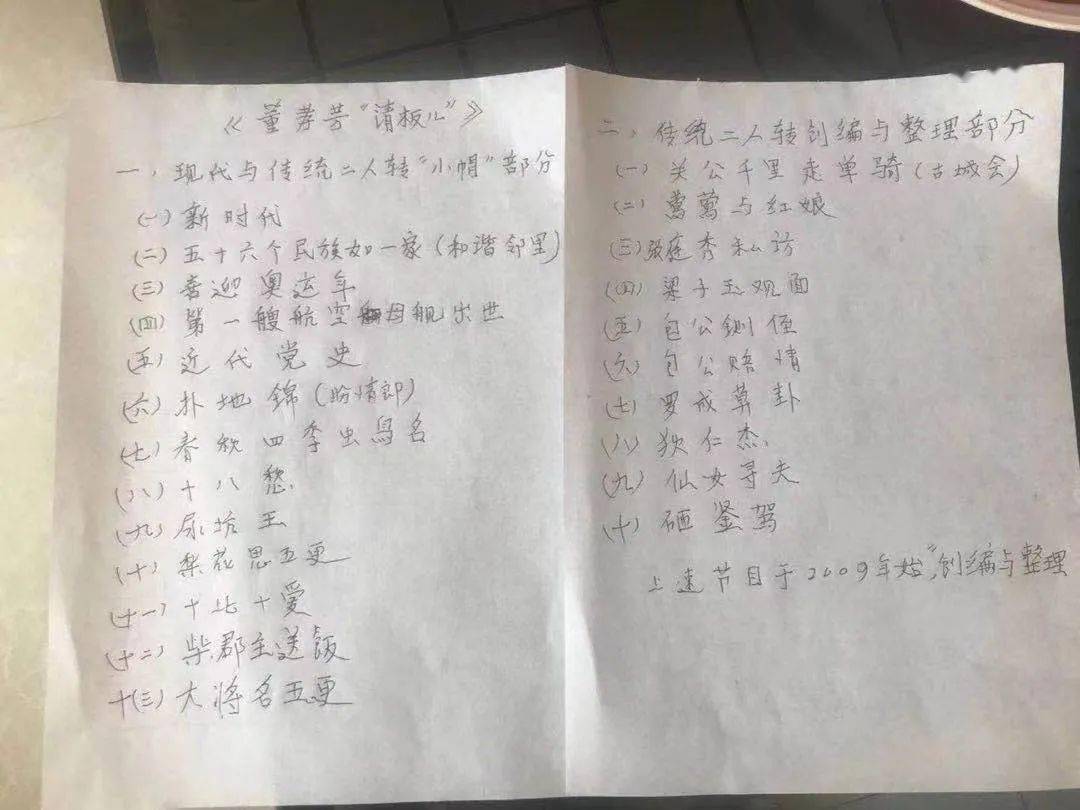 《董孝芳“清板儿”》
一，现代与传统二人转“小帽”部分
(一)新时代
(二)五十六个民族如一家(和谐邻里)
(三)喜迎奥运年
(四)第一艘航空母舰出世
(五)近代党史
(六)扑地錦(盼情郎)
(七)春秋四季出鸟名
(八)十八愁
(九)尿坑王
(十)梨花思五更
(十一)十比十爱
(十二)柴郡主送飯
十(三)大将名五更
二，传统二人转创编与整理部分
(一)关公千里走单骑(古城会)
(二)莺莺与红娘
(三)张廷秀私访
(四)梁子玉观面
(五)包公铡侄
(六)包公赔情
(七)罗成算卦
(八)狄仁杰
(九)仙女寻夫
(十)砸銮驾
上述节目于2009年始,创编与整理